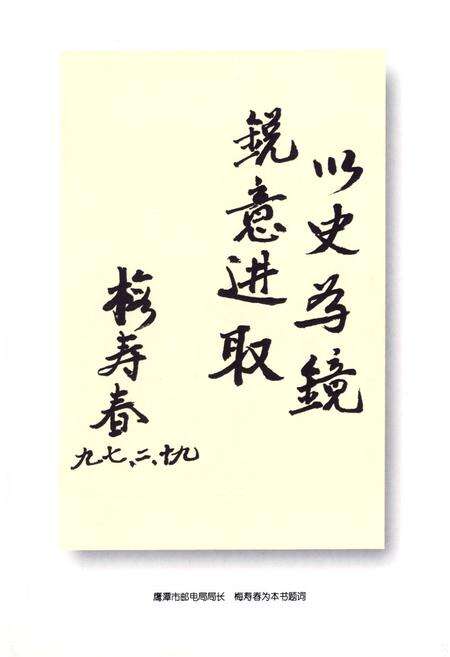 以史为鏡
鋭意进取
梅寿春
九七、二、十九
鹰潭市邮电局局长 梅寿春为本书题词